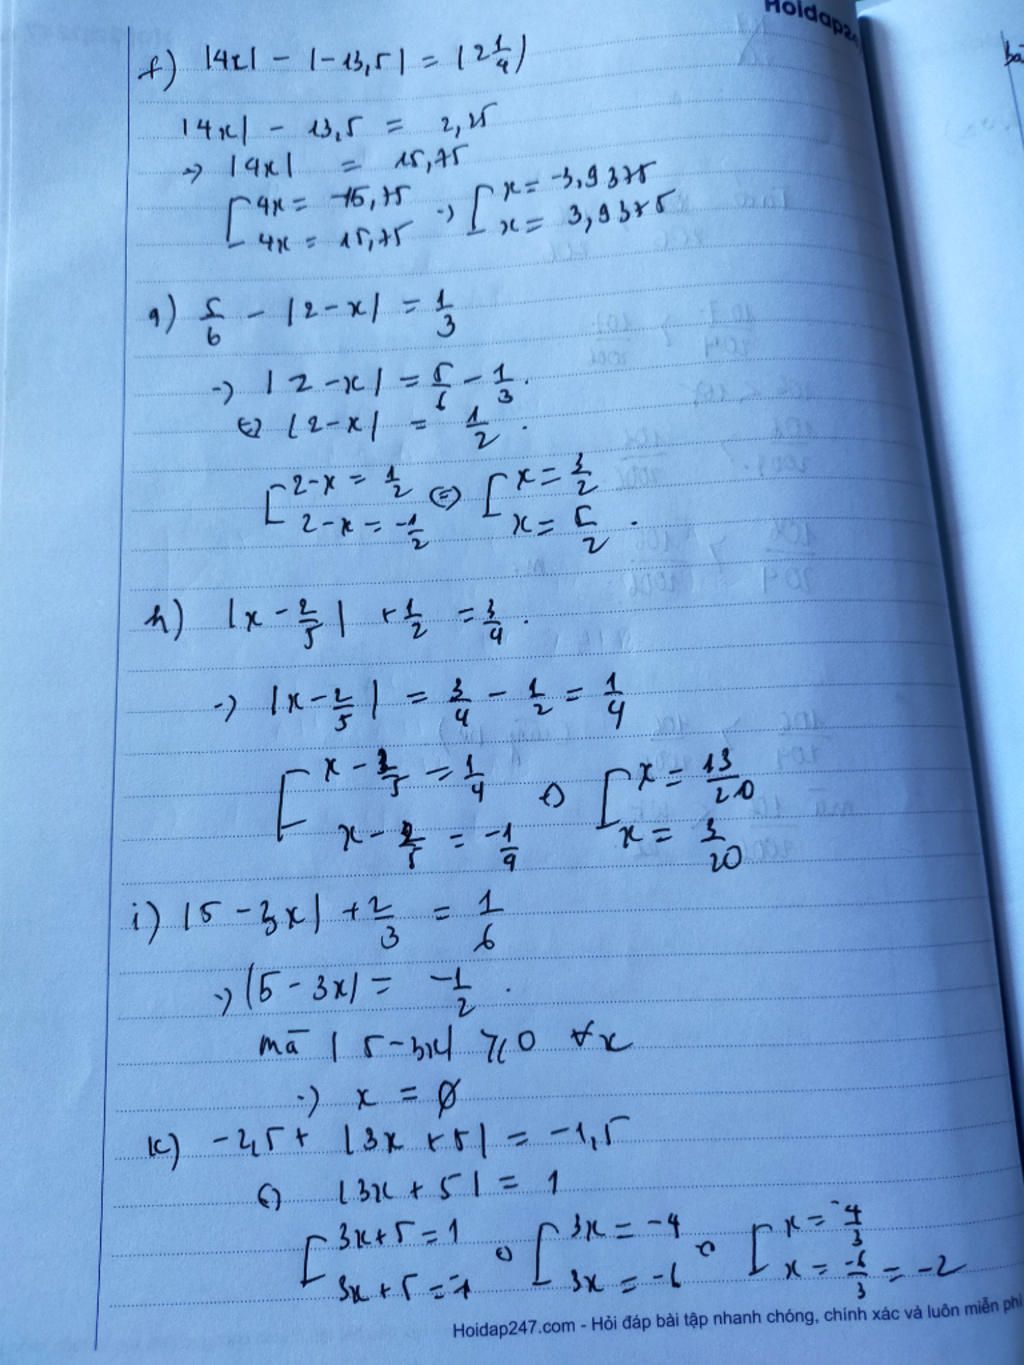 Hoidap24
f) |4x| - |-13,5| = |2 1/4|
|4x| - 13,5 = 2,25
→ |4x| = 15,75
[ 4x = -15,75 → [ x = -3,9375
4x = 15,75 x = 3,9375
g) 5/6 - |2-x| = 1/3
→ |2-x| = 5/6 - 1/3.
⇔ |2-x| = 1/2.
[ 2-x = 1/2 ⇔ [ x = 3/2
2-x = -1/2 x = 5/2.
h) |x - 2/5| + 1/2 = 3/4.
→ |x - 2/5| = 3/4 - 1/2 = 1/4
[ x - 2/5 = 1/4 ⇔ [ x = 13/20
x - 2/5 = -1/4 x = 3/20
i) |5 - 3x| + 2/3 = 1/6
→ |5 - 3x| = -1/2.
mà |5-3x| ≥ 0 ∀x
→ x = ∅
k) -2,5 + |3x + 5| = -1,5
⇔ |3x + 5| = 1
[ 3x+5 = 1 ⇔ [ 3x = -4 ⇔ [ x = -4/3
3x+5 = -1 3x = -6 x = -6/3 = -2
Hoidap247.com - Hỏi đáp bài tập nhanh chóng, chính xác và luôn miễn phí